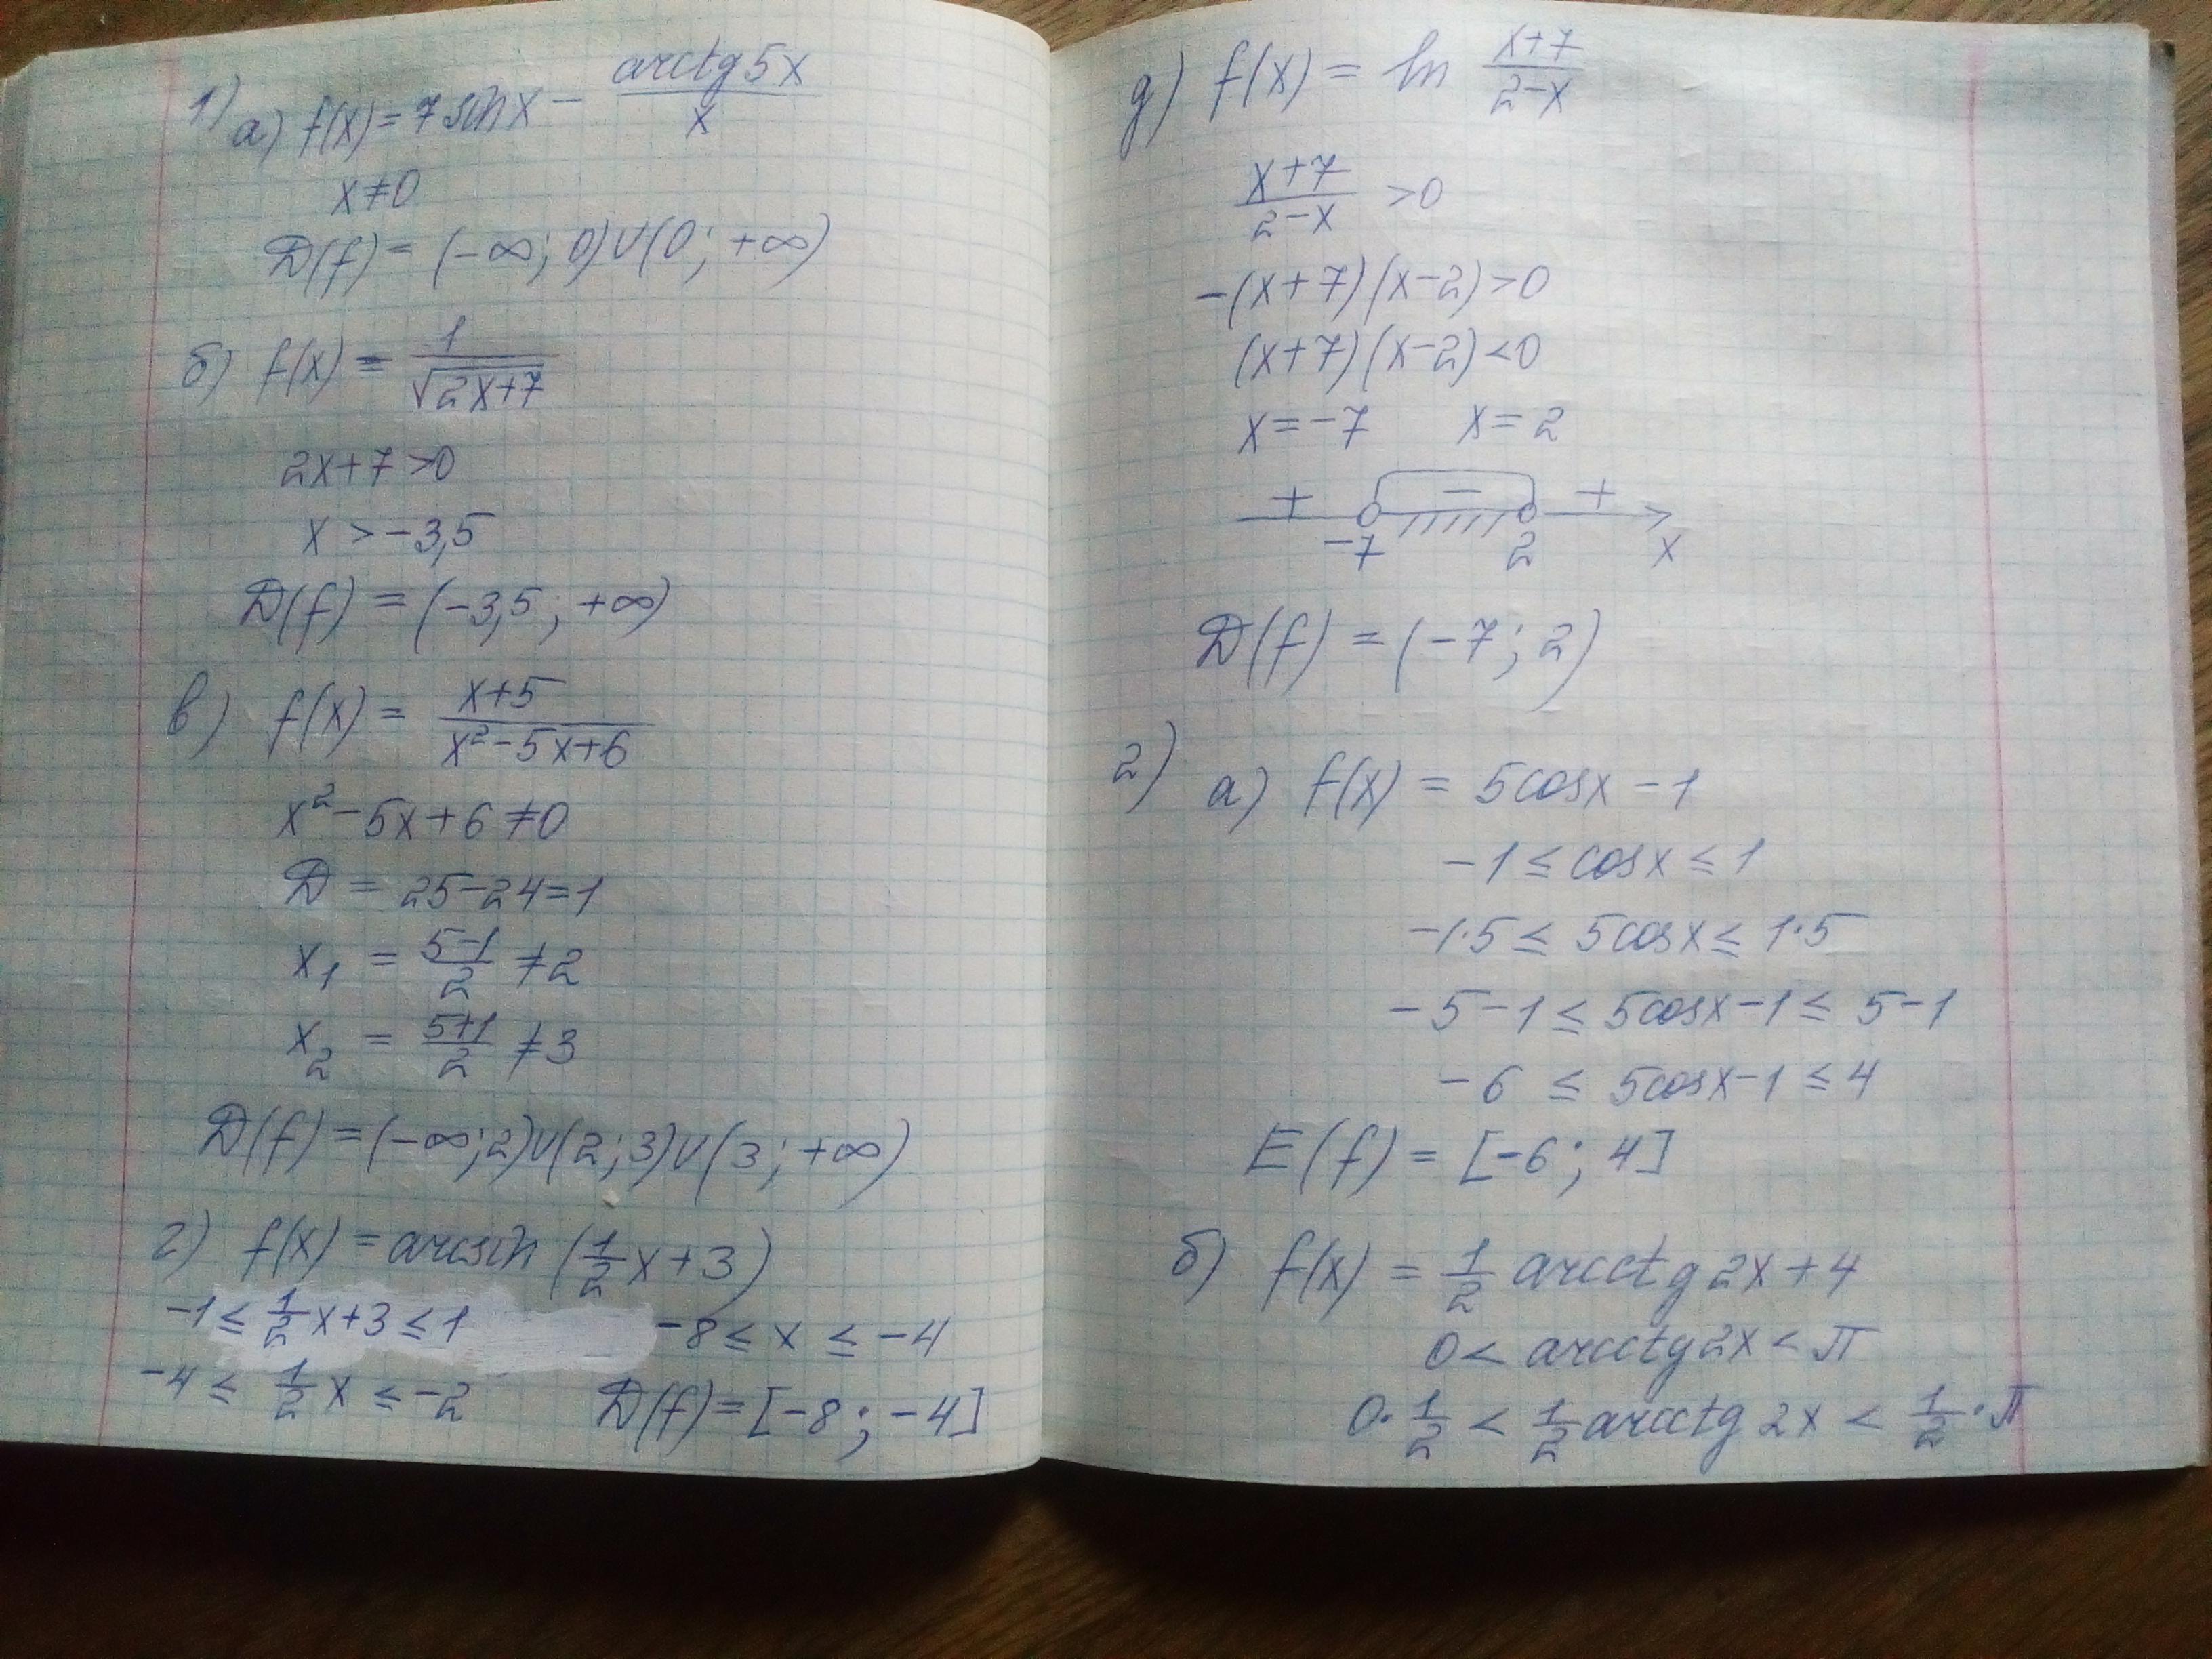 1) а) f(x) = 7 sin x − arctg 5x / x
x ≠ 0
D(f) = (−∞; 0)∪(0; +∞)
б) f(x) = 1 / √(2x+7)
2x+7 > 0
x > −3,5
D(f) = (−3,5; +∞)
в) f(x) = x+5 / x²−5x+6
x²−5x+6 ≠ 0
D = 25−24=1
x₁ = 5−1 / 2 ≠ 2
x₂ = 5+1 / 2 ≠ 3
D(f) = (−∞; 2)∪(2; 3)∪(3; +∞)
г) f(x) = arcsin (1/2 x+3)
−1 ≤ 1/2 x+3 ≤ 1
−8 ≤ x ≤ −4
−4 ≤ 1/2 x ≤ −2
D(f) = [−8; −4]
д) f(x) = ln x+7 / 2−x
x+7 / 2−x > 0
−(x+7)(x−2) > 0
(x+7)(x−2) < 0
x = −7 x = 2
+ − +
−7 2 x
D(f) = (−7; 2)
2) а) f(x) = 5cosx − 1
−1 ≤ cosx ≤ 1
−1·5 ≤ 5cosx ≤ 1·5
−5−1 ≤ 5cosx−1 ≤ 5−1
−6 ≤ 5cosx−1 ≤ 4
E(f) = [−6; 4]
б) f(x) = 1/2 arcctg 2x + 4
0 < arcctg 2x < π
0·1/2 < 1/2 arcctg 2x < 1/2·π